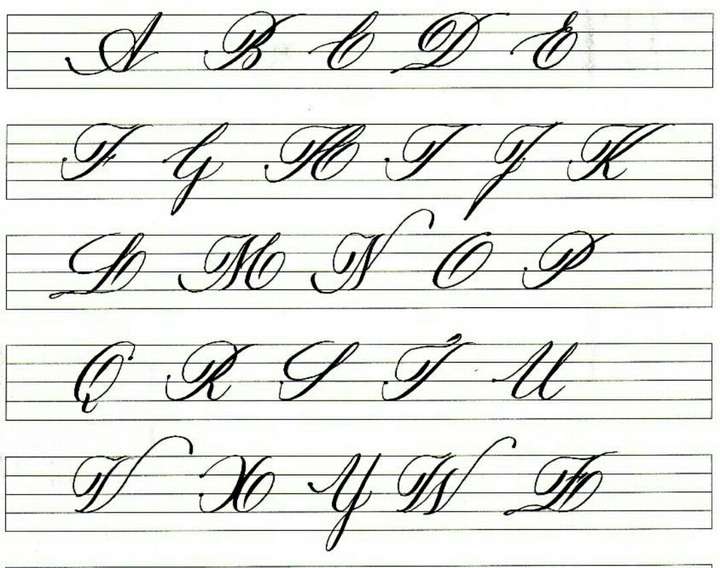 A B C D E
F G H I J K
L M N O P
Q R S T U
V X Y W Z